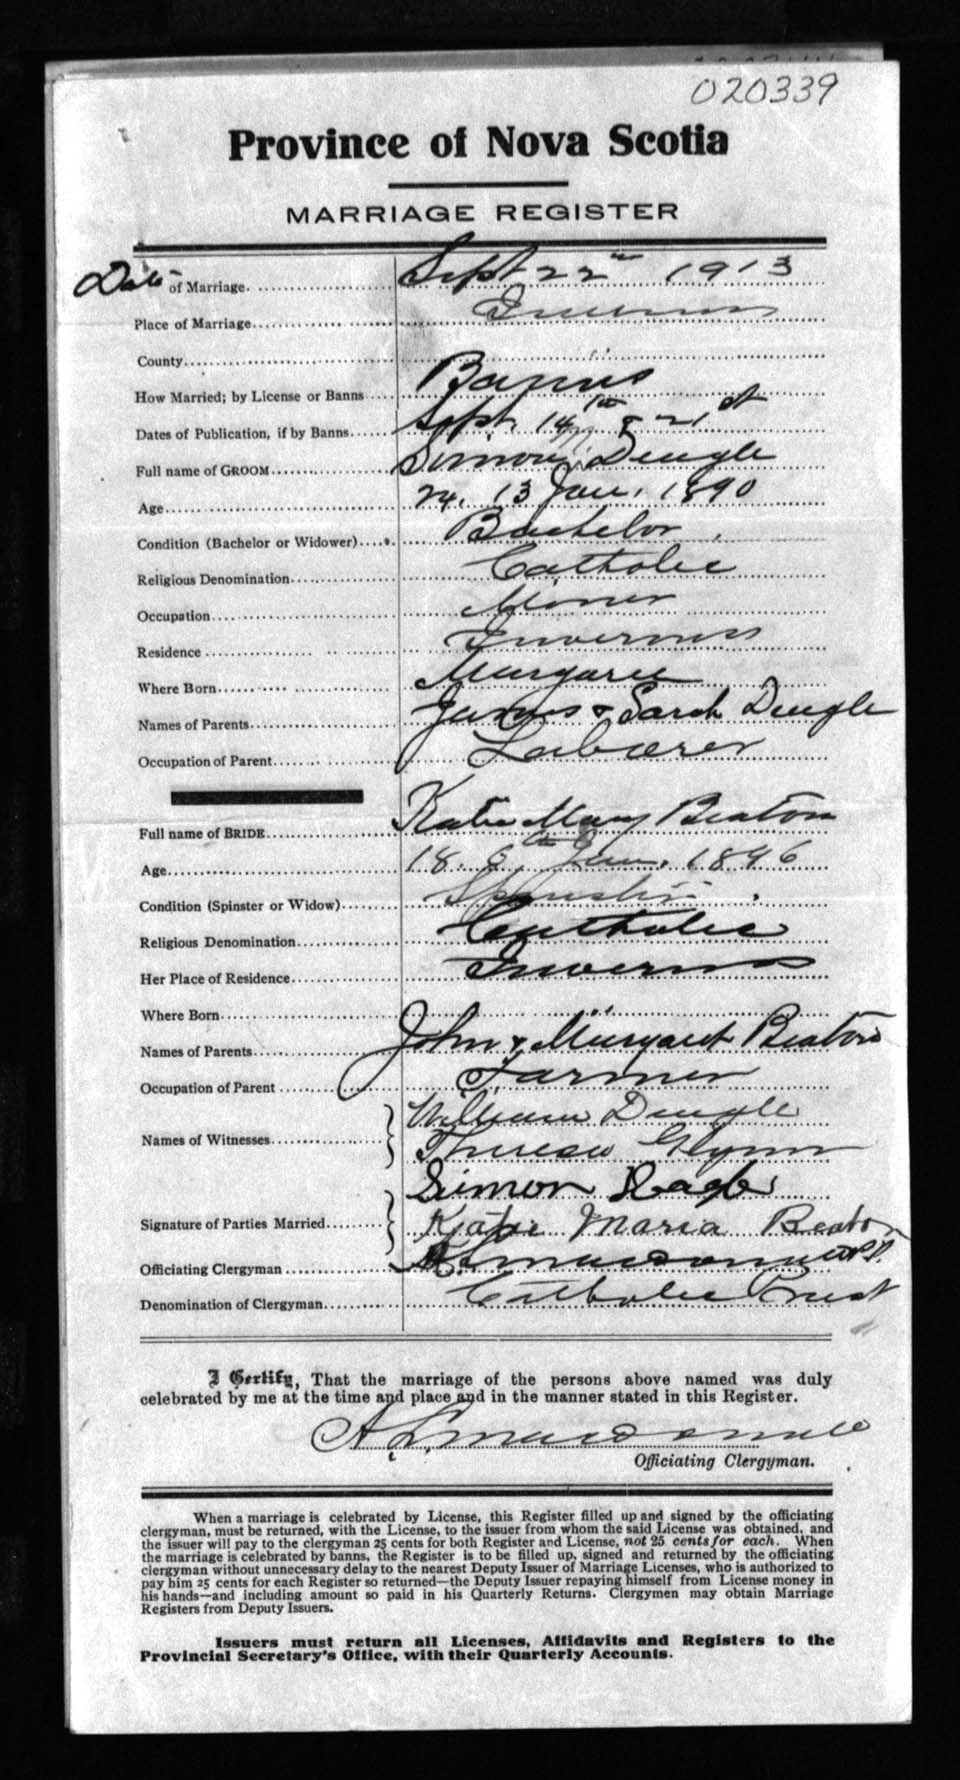 020339
Province of Nova Scotia
MARRIAGE REGISTER
Date of Marriage. Sept 22nd 1913
Place of Marriage Inverness
County "
How Married; by License or Banns Banns
Dates of Publication, if by Banns Sept. 14th & 21st
Full name of GROOM Simon Dingle
Age 24. 13 Jan. 1890
Condition (Bachelor or Widower) Bachelor
Religious Denomination Catholic
Occupation Miner
Residence Inverness
Where Born Margaree
Names of Parents James & Sarah Dingle
Occupation of Parent Laborer
Full name of BRIDE Katie Mary Beaton
Age 18. 6th Jan. 1896
Condition (Spinster or Widow) Spinster
Religious Denomination Catholic
Her Place of Residence Inverness
Where Born "
Names of Parents John & Margaret Beaton
Occupation of Parent Farmer
Names of Witnesses William Dingle
Theresa Glynn
Simon
Signature of Parties Married Katie Maria Beaton
Officiating Clergyman A. L. Macdonald P.P.
Denomination of Clergyman Catholic Priest
I Certify, That the marriage of the persons above named was duly
celebrated by me at the time and place and in the manner stated in this Register.
A. L. Macdonald
Officiating Clergyman.
When a marriage is celebrated by License, this Register filled up and signed by the officiating
clergyman, must be returned, with the License, to the issuer from whom the said License was obtained, and
the issuer will pay to the clergyman 25 cents for both Register and License, not 25 cents for each. When
the marriage is celebrated by banns, the Register is to be filled up, signed and returned by the officiating
clergyman without unnecessary delay to the nearest Deputy Issuer of Marriage Licenses, who is authorized to
pay him 25 cents for each Register so returned—the Deputy Issuer repaying himself from License money in
his hands—and including amount so paid in his Quarterly Returns. Clergymen may obtain Marriage
Registers from Deputy Issuers.
Issuers must return all Licenses, Affidavits and Registers to the
Provincial Secretary's Office, with their Quarterly Accounts.